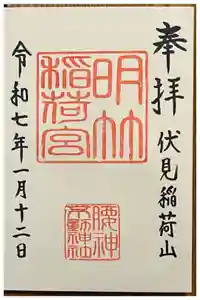 奉拝
伏見稲荷山
明竹
稲荷宮
腰神
不動神社
令和七年一月十二日